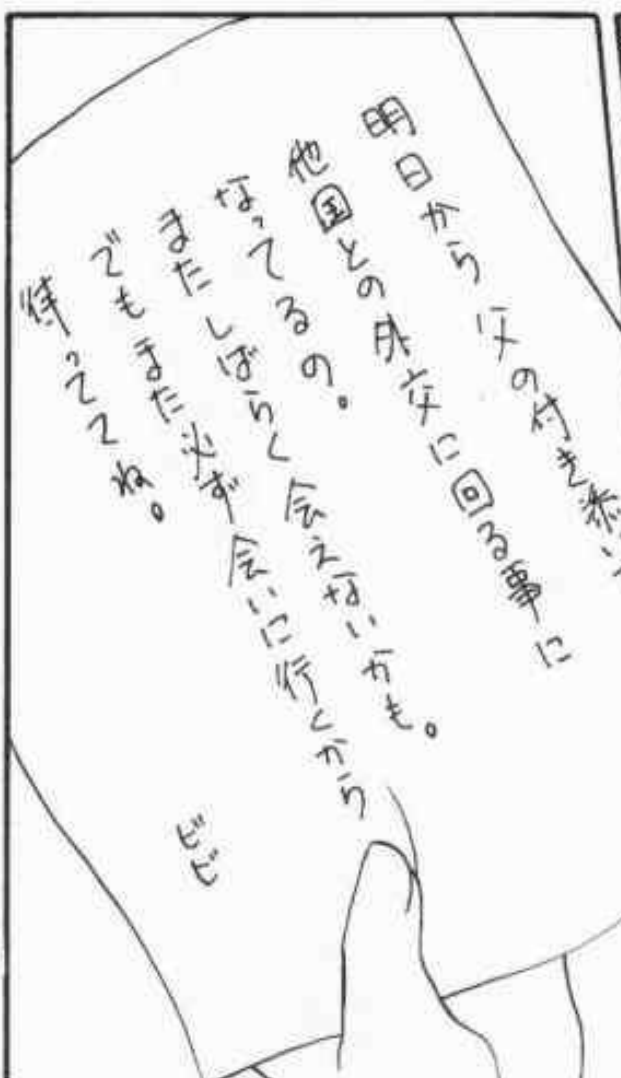 明日から父の付き添い
他国との外交に回る事に
なってるの。
またしばらく会えないかも。
でもまた必ず会いに行くから
待っててね。
ビビ